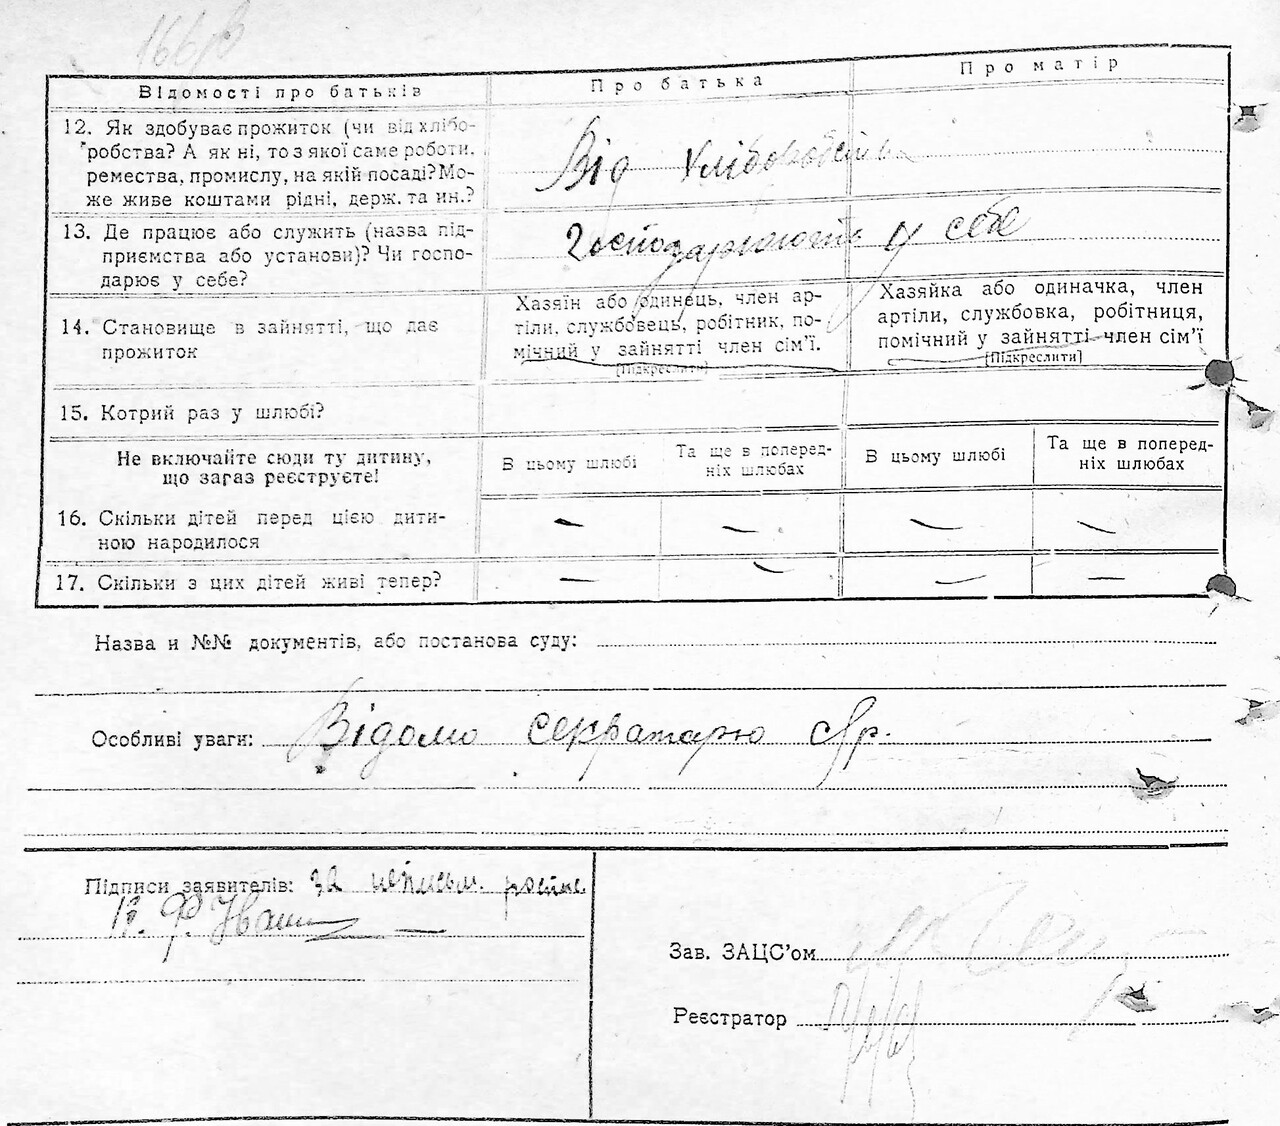 Відомості про батьків
Про батька
Про матір
12. Як здобуває прожиток (чи від хлібо-
робства? А як ні, то з якої саме роботи.
ремества, промислу, на якій посаді? Мо-
же живе коштами рідні, держ. та ин.?
Від хліборобства
13. Де працює або служить (назва під-
приємства або установи)? Чи госпо-
дарює у себе?
Господарюють у себе
14. Становище в зайнятті, що дає
прожиток
Хазяїн або одинець, член ар-
тіли, службовець, робітник, по-
мічний у зайнятті член сім'ї.
[Підкреслити]
Хазяйка або одиначка, член
артіли, службовка, робітниця,
помічний у зайнятті член сім'ї
[Підкреслити]
15. Котрий раз у шлюбі?
Не включайте сюди ту дитину,
що загаз реєструєте!
В цьому шлюбі
Та ще в поперед-
ніх шлюбах
В цьому шлюбі
Та ще в поперед-
ніх шлюбах
16. Скільки дітей перед цією дити-
ною народилося
— — — —
17. Скільки з цих дітей живі тепер?
— — — —
Назва и №№ документів, або постанова суду:
Особливі уваги: Відомо секратарю с/р.
Підписи заявителів: за неписьм. роспис.
Ф. Іван
Зав. ЗАЦС'ом
Реєстратор